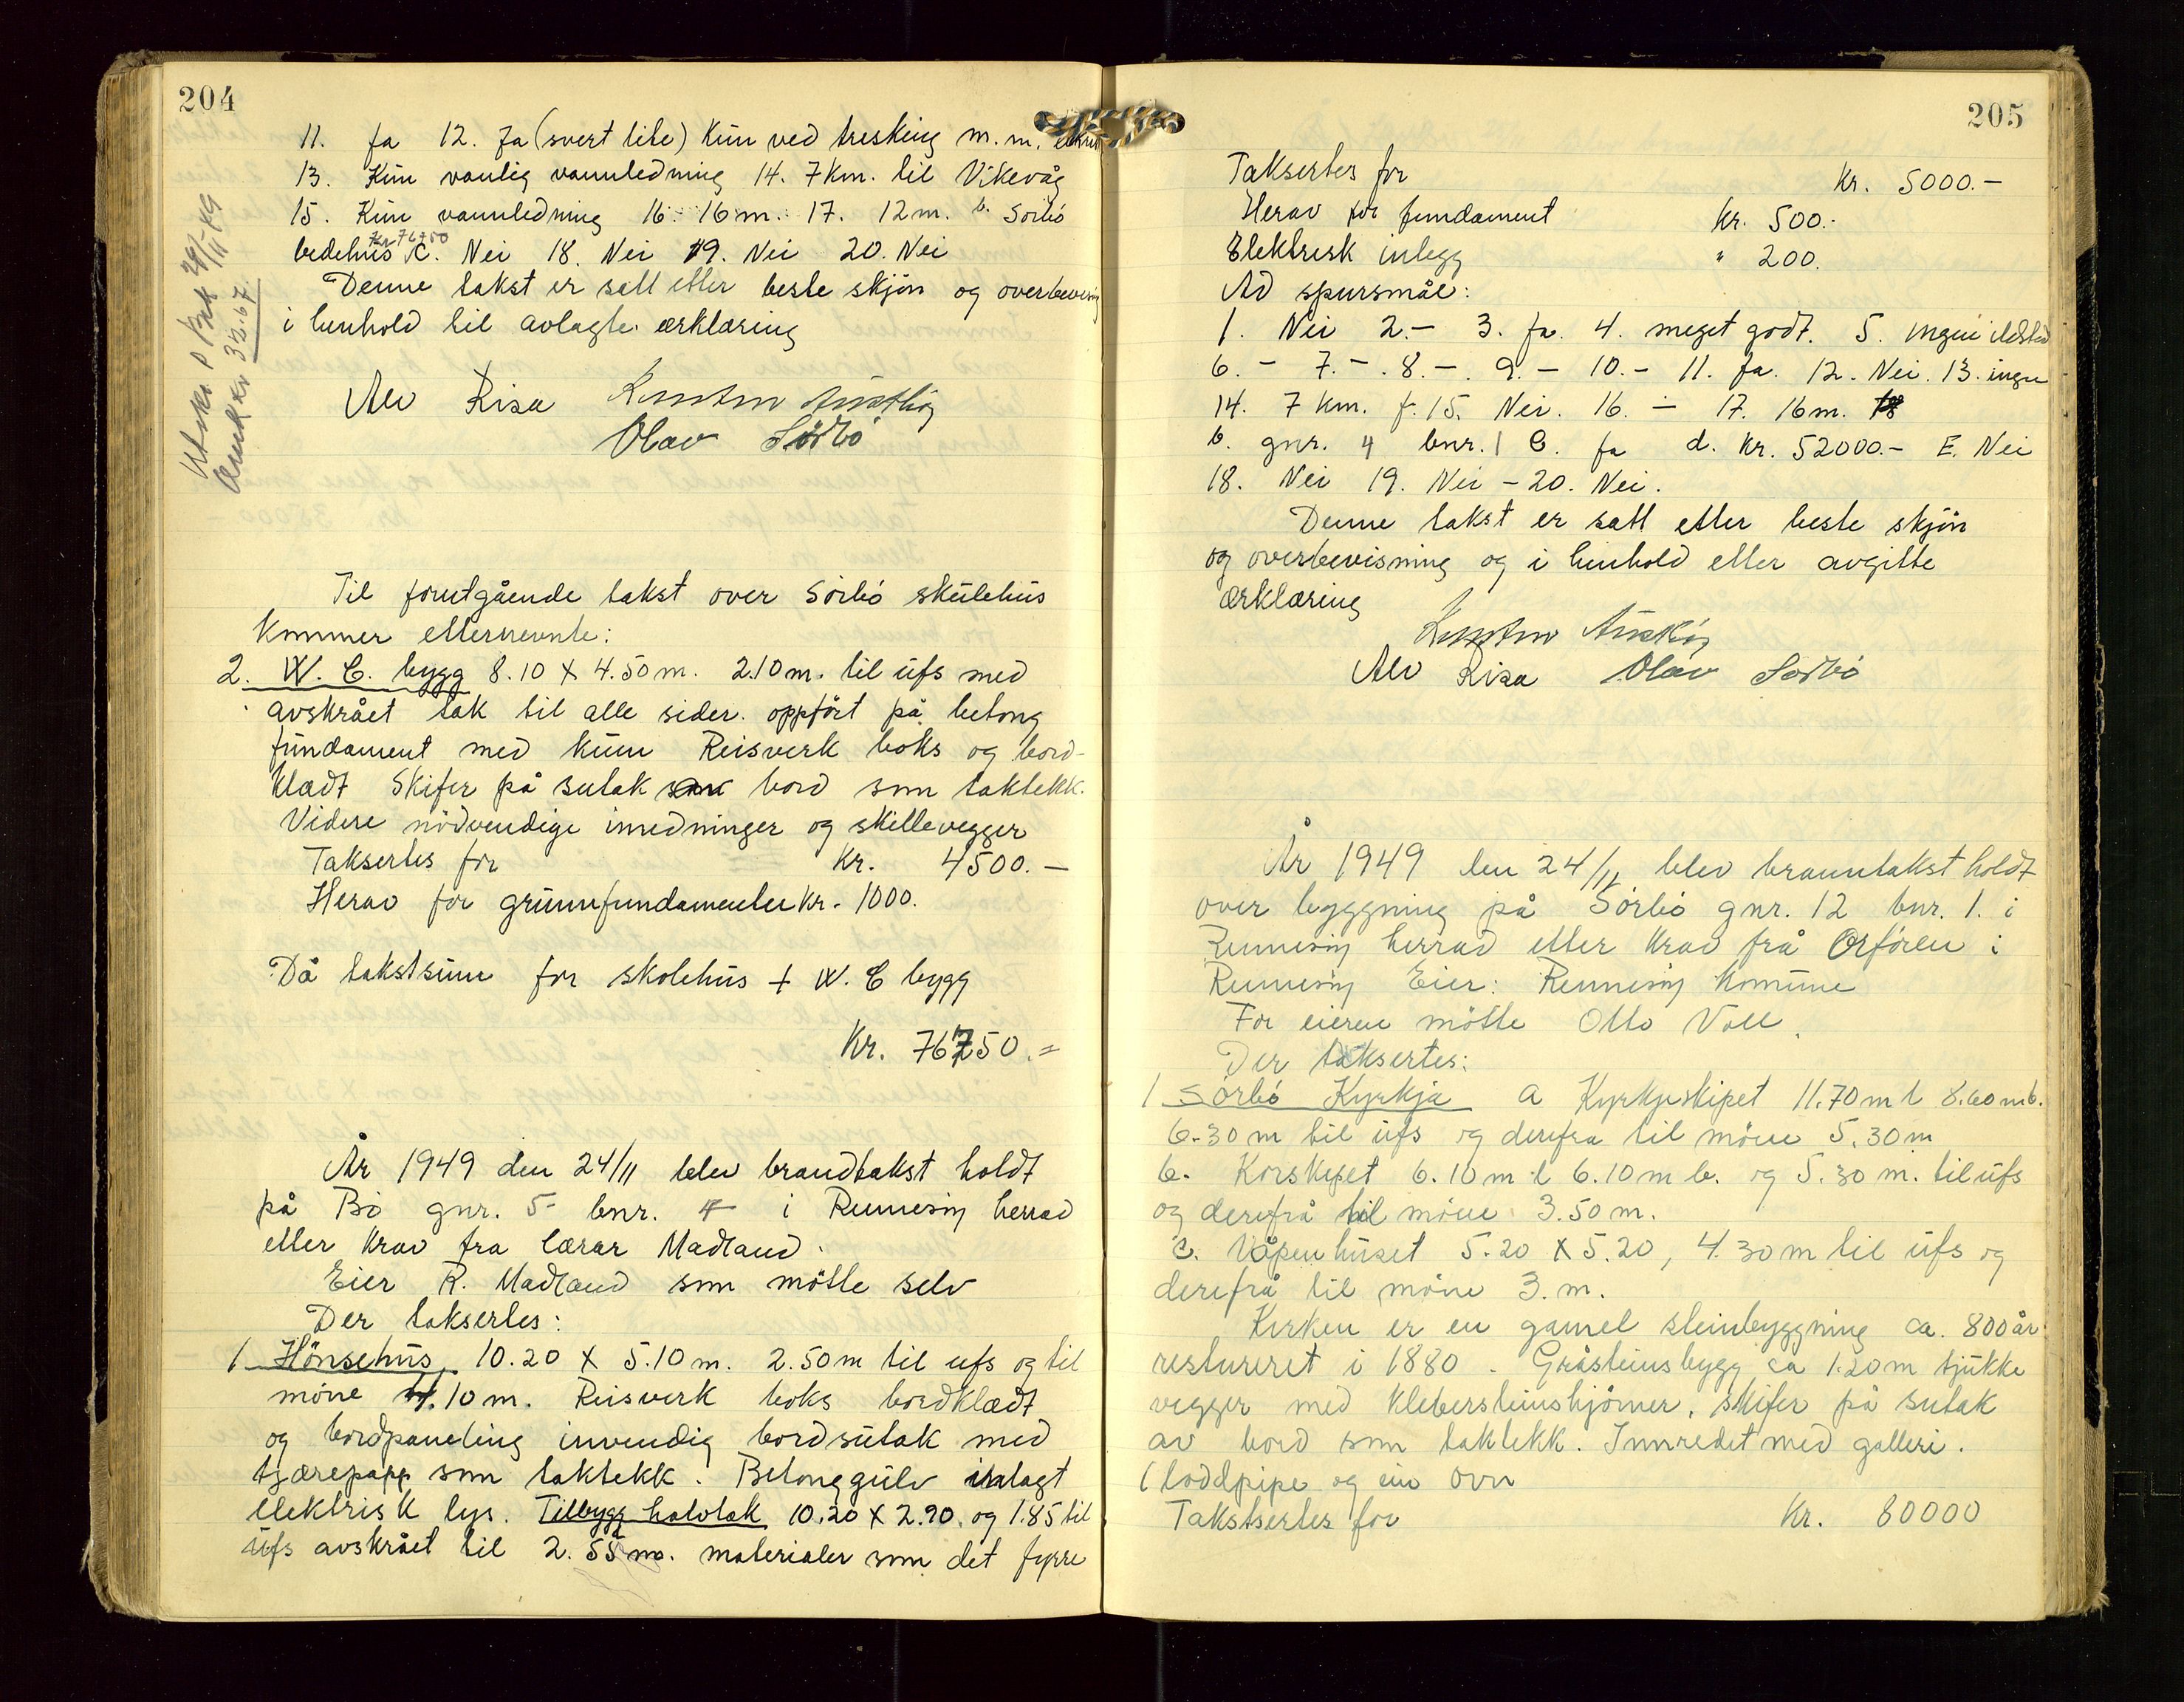 204
11. Ja 12. Ja (svert lite) Kun ved tresking m.m.
13. Kun vanlig vannledning 14. 7 km. til Vikevåg
15. Kun vannledning 16. 16 m. 17. 12 m. b. Sörbö
Kr 76750
bedehus C. Nei 18. Nei 19. Nei 20. Nei
Denne takst er satt etter beste skjön og overbevisning
i henhold til avlagte erklæring
Alv Risa
Olav Sörbö
Til forutgående takst over Sörbö skulehus
kommer etternevnte:
2. W. C. bygg 8.10 X 4.50 m. 2.10 m. til ufs med
avskrået tak til alle sider. oppfört på betong
fundament med kum Reisverk boks og bord-
klædt Skifer på sutak bord som taktekk.
Videre nödvendige inredninger og skillevegger
Taksertes for Kr. 4500.-
Herav for grunnfundamenter Kr. 1000.
Då takstsum for skolehus + W. C bygg
Kr. 76750.=
År 1949 den 24/11 blev brandtakst holdt
på Bö gnr. 5 bnr. 4 i Rennesöy herrad
etter krav fra lærar Madland.
Eier R. Madland som mötte selv
Der taksertes:
1 Hönsehus, 10.20 X 5.10 m. 2.50 m til ufs og til
möne 4.10 m. Reisverk boks bordklædt
og bordpaneling invendig bordsutak med
tjærepapp som taktekk. Betonggulv inlagt
elektrisk lys. Tilbygg halvtak 10.20 X 2.90. og 1.85 til
ufs avskrået til 2.55 m. materialer som det fyrre
205
Taksertes for Kr. 5000.-
Herav for fundament Kr. 500.-
Elektrisk inlegg " 200.
Ad spursmål:
1. Nei 2.- 3. Ja. 4. meget godt. 5. ingen ildsted
6. - 7. -. 8. -. 9. - 10. - 11. Ja. 12. Nei. 13. ingen
14. 7 Km. f. 15. Nei. 16. - 17. 16 m.
b. gnr. 4 bnr. 1 C. Ja d. Kr. 52000.- E. Nei
18. Nei 19. Nei - 20. Nei.
Denne takst er satt etter beste skjön
og overbevisning og i henhold etter avgitte
erklæring
Alv Risa Olav Sörbö
År 1949 den 24/11 blev branntakst holdt
over byggning på Sörbö gnr. 12 bnr. 1. i
Rennesöy herrad etter krav frå Orfören i
Rennesöy Eier: Rennesöy Kommune
For eieren mötte Otto Voll.
Der taksertes:
1 Sörbö Kyrkja a Kyrkjeskipet 11.70 m l 8.60 m b.
6.30 m til ufs og derefra til möne 5.30 m
b. Korskipet 6.10 m l 6.10 m b. og 5.30 m. til ufs
og derefrå til möne 3.50 m.
c. Våpenhuset 5.20 X 5.20, 4.30 m til ufs og
derefrå til möne 3. m.
Kirken er en gamel steinbyggning ca. 800 år
restureret i 1880. Gråsteinsbygg ca 1.20 m tjukke
vegger med klebersteinshjörner. skifer på sutak
av bord som taktekk. Innredet med galleri.
1 loddpipe og ein ovn
Takstsertes for Kr. 80000